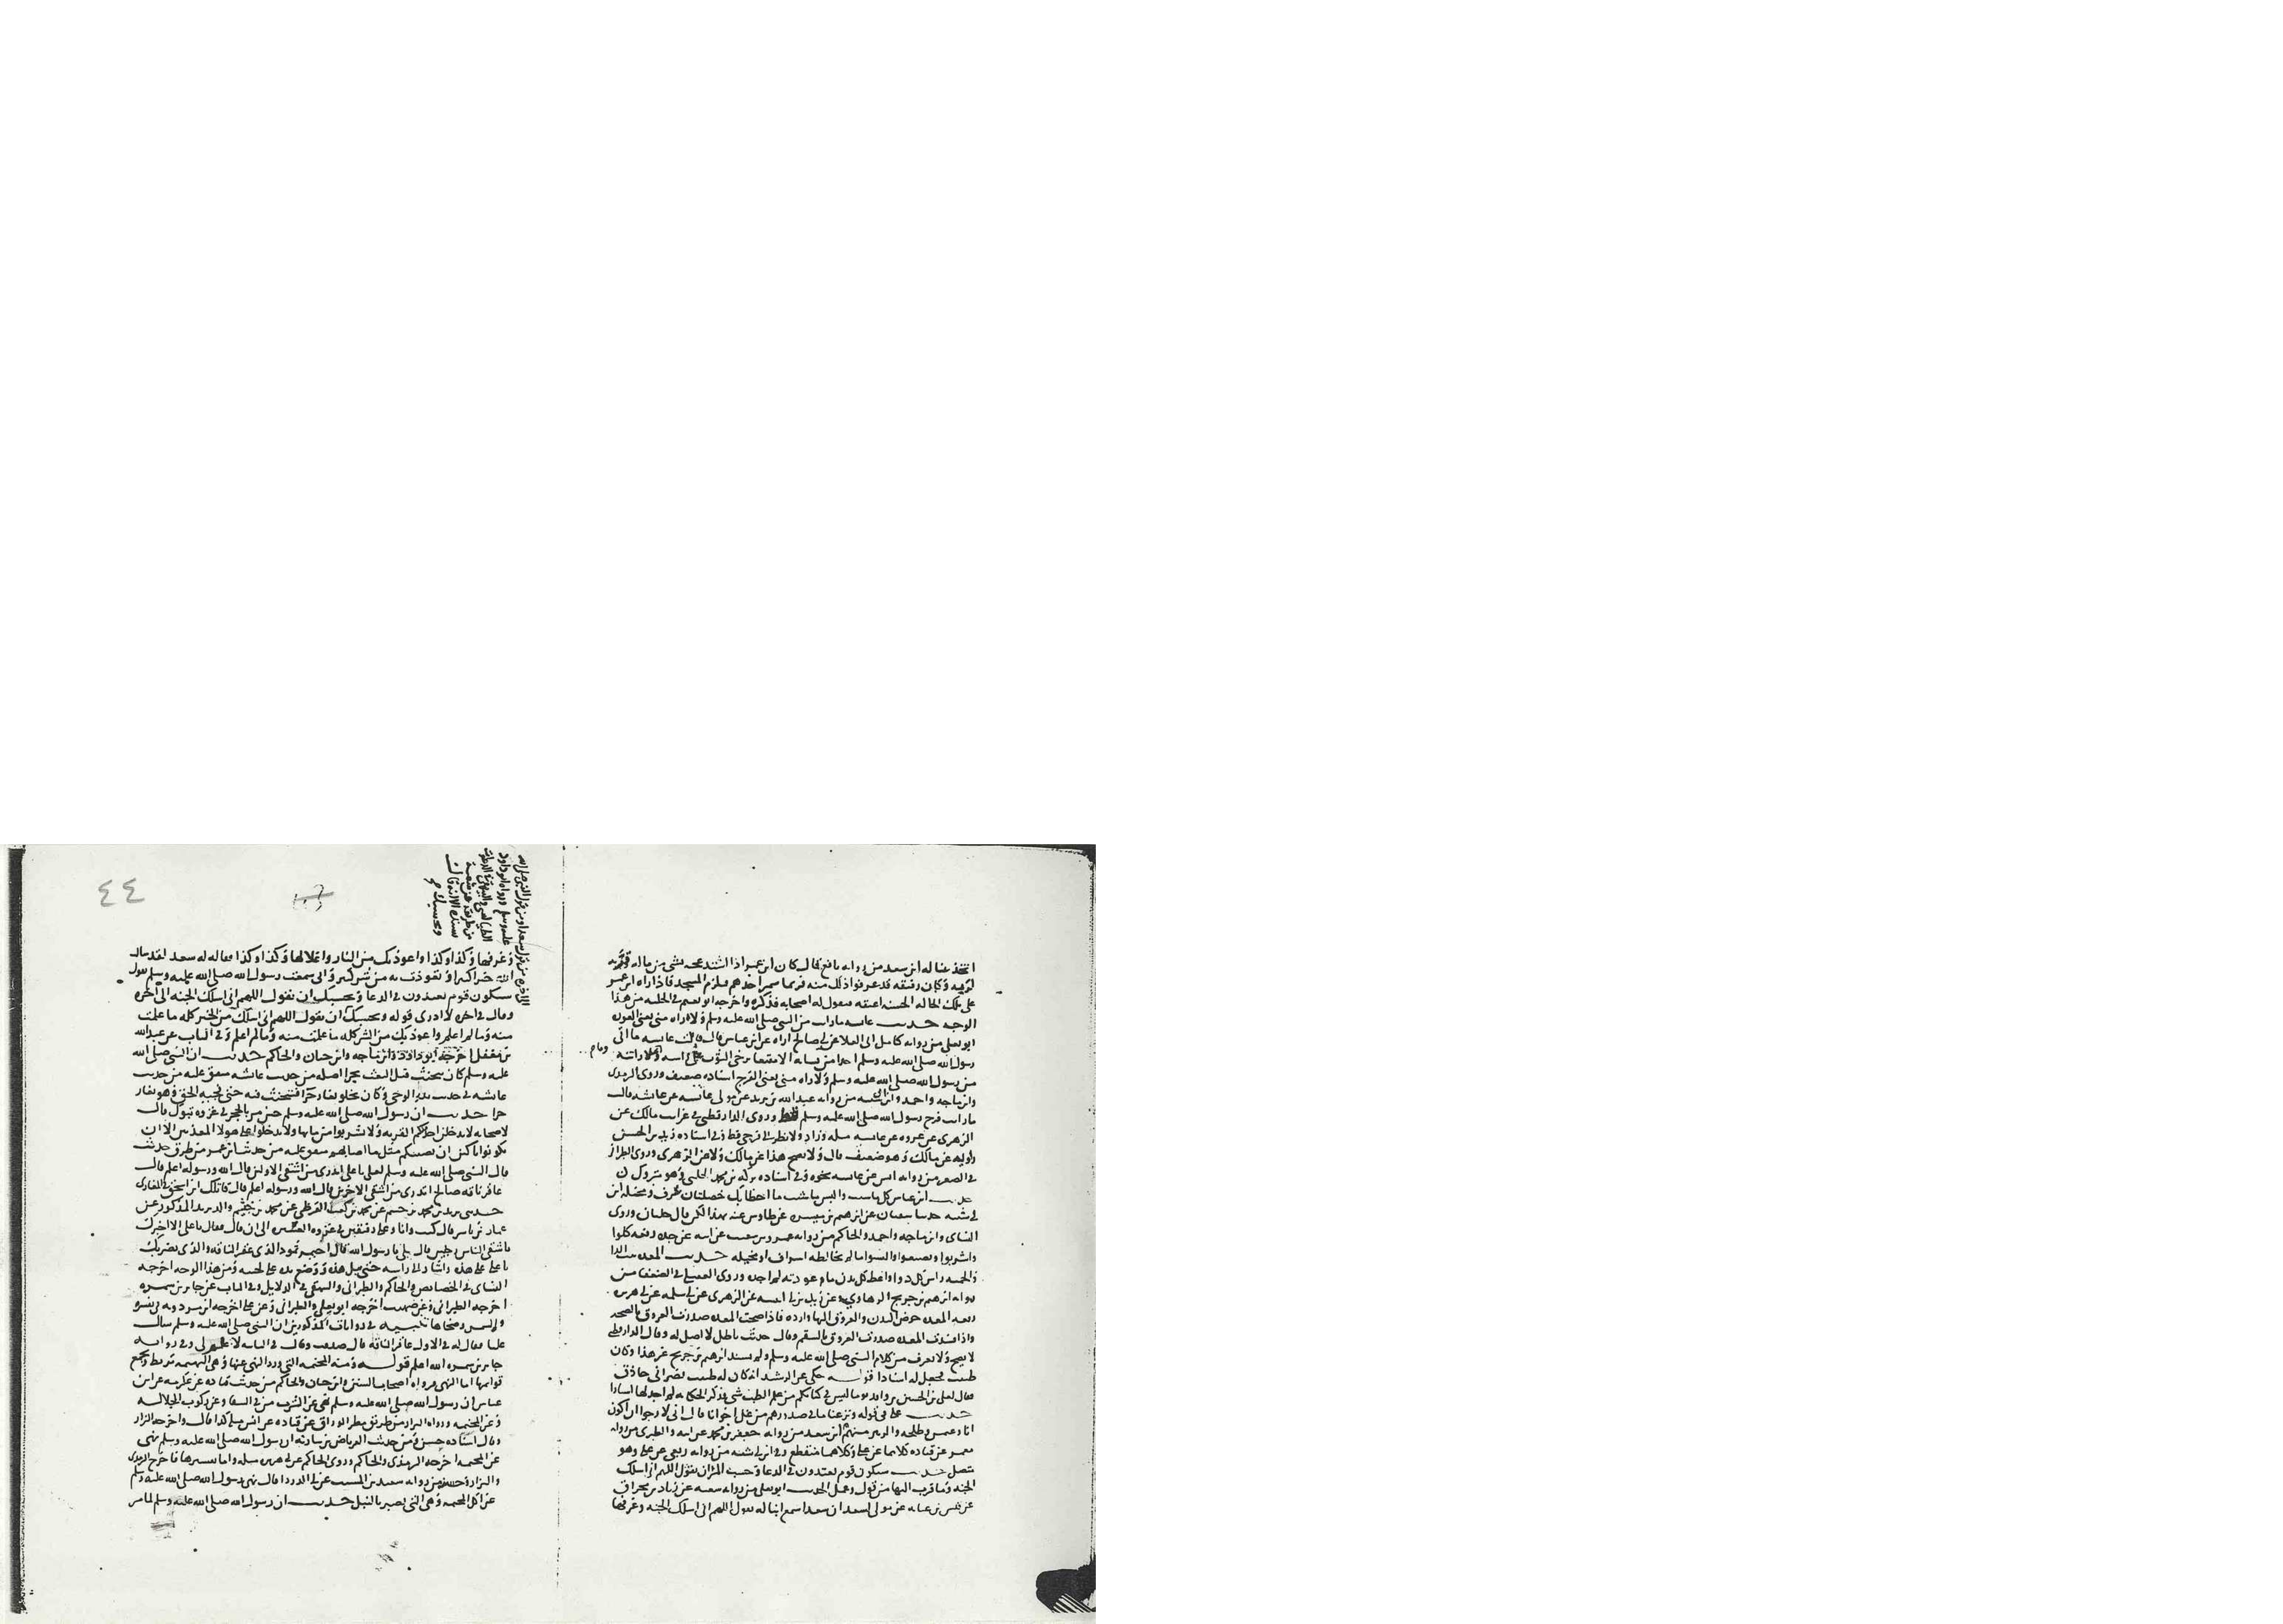 اتخذ عنا له ابن سعد من رواية نافع قال كان ابن عمر اذا اشتد عجبه بشي من ماله قربه
لربه وكان رقيقه قد عرفوا ذلك منه فربما شمر احدهم فلزم المسجد فاذا راه ابن عمر
على تلك الحاله الحسنه اعتقه فيقول له اصحابه فذكره واخرجه ابو نعيم في الحليه من هذا
الوجه حديث عايشه ما رايت من النبي صلى الله عليه وسلم ولا راه مني يعني العوره
ابو يعلى من رواية كامل ابي العلا عن ابي صالح اراه عن ابن عباس قال قالت عايشه ما اتى
رسول الله صلى الله عليه وسلم احدا من نسايه الا متقنعا يرخي الثوب على راسه وما رايته
من رسول الله صلى الله عليه وسلم ولا راه مني يعني الفرج اسناده ضعيف وروى الترمذي
وابن ماجه واحمد وابن ابي شيبه من رواية عبد الله بن يزيد عن مولى عايشه عن عايشه قالت
ما رايت فرج رسول الله صلى الله عليه وسلم قط وروى الدارقطني في غرايب مالك عن
الزهري عن عروه عن عايشه مثله وزاد ولا نظر الى فرجي قط وفي اسناده زيد بن الحسن
راويه عن مالك وهو ضعيف قال ولا يصح هذا عن مالك ولا عن الزهري وروى الطبراني
في الصغير من رواية انس عن عايشه نحوه وفي اسناده بركه بن محمد الحلبي وهو متروك
حديث ابن عباس كل ما شيت والبس ما شيت ما اخطاتك خصلتان سرف ومخيله ابن
ابي شيبه حدثنا سفيان عن ابرهيم بن ميسره عن طاوس عنه بهذا لكن قال خلتان وروى
النساي وابن ماجه واحمد والحاكم من رواية عمرو بن شعيب عن ابيه عن جده رفعه كلوا
واشربوا وتصدقوا والبسوا ما لم يخالطه اسراف او مخيله حديث المعده بيت الدا
والحميه راس كل دوا واعط كل بدن ما عودته لم اجده وروى العقيلي في الضعفا من
رواية ابرهيم بن جريج الرهاوي عن زيد بن ابي انيسه عن الزهري عن ابي سلمه عن ابي هريره
رفعه المعده حوض البدن والعروق اليها وارده فاذا صحت المعده صدرت العروق بالصحه
واذا فسدت المعده صدرت العروق بالسقم وقال حديث باطل لا اصل له وقال الدارقطني
لا يصح ولا يعرف من كلام النبي صلى الله عليه وسلم ولم يسند ابرهيم بن جريج غير هذا وكان
طبيبا فجعل له اسنادا قوله حكي عن الرشيد انه كان له طبيب نصراني حاذق
فقال لعلي بن الحسين بن واقد يوما ليس في كتابكم من علم الطب شي فذكر الحكايه لم اجد لها اسنادا
حديث علي في قوله ونزعنا ما في صدورهم من غل اخوانا قال اني لارجوا ان اكون
انا وعثمن وطلحه والزبير منهم ابن سعد من رواية جعفر بن محمد عن ابيه والطبري من رواية
معمر عن قتاده كلاهما عن علي وكلاهما منقطع وفي ابن ابي شيبه من رواية ربعي عن علي وهو
متصل حديث سيكون قوم يعتدون في الدعا وحسب المر ان يقول اللهم اني اسلك
الجنه وما قرب اليها من قول وعمل الحديث ابو يعلى من رواية شعبه عن زياد بن مخراق
عن قيس بن عبايه عن مولى لسعد ان سعدا سمع ابنا له يقول اللهم اني اسلك الجنه وغرفها
٤٤
وغرفها وكذا وكذا واعوذ بك من النار واغلالها وكذا وكذا فقال له سعد لقد سالت
الله خيرا كثيرا وتعوذت به من شر كثير واني سمعت رسول الله صلى الله عليه وسلم يقول
سيكون قوم يعتدون في الدعا وبحسبك ان تقول اللهم اني اسلك الجنه الى اخره
وقال في اخره لا ادري قوله وبحسبك ان تقول اللهم اني اسلك من الخير كله ما علمت
منه وما لم اعلم واعوذ بك من الشر كله ما علمت منه وما لم اعلم وفي الباب عن عبد الله
بن مغفل اخرجه ابو داود وابن ماجه وابن حبان والحاكم حديث ان النبي صلى الله
عليه وسلم كان يتحنث قبل البعث بحرا اصله من حديث عايشه متفق عليه من حديث
عايشه في حديث بدو الوحي وكان يخلو بغار حرا فيتحنث فيه حتى نجيه الحق وهو بغار
حرا حديث ان رسول الله صلى الله عليه وسلم حين مر بالحجر في غزوه تبوك قال
لاصحابه لا يدخلن احدكم القريه ولا تشربوا من مايها ولا تدخلوا على هولا المعذبين الا ان
تكونوا باكين ان يصيبكم مثل ما اصابهم متفق عليه من حديث ابن عمر من طرق حديث
قال النبي صلى الله عليه وسلم لعلي يا علي اتدري من اشقى الاولين قال الله ورسوله اعلم قال
عاقر ناقه صالح اتدري من اشقى الاخرين قال الله ورسوله اعلم قال قاتلك ابن اسحق في المغازي
حدثني يزيد بن محمد بن خثيم عن محمد بن كعب القرظي عن محمد بن خثيم والد يزيد المذكور عن
عمار بن ياسر قال كنت انا وعلي رفيقين في غزوه العشيره الى ان قال فقال يا علي الا اخبرك
باشقى الناس رجلين قال بلى يا رسول الله قال احيمر ثمود الذي عقر الناقه والذي يضربك
يا علي على هذه واشار الى راسه حتى تبل هذه ووضع يده على لحيته ومن هذا الوجه اخرجه
النساي في الخصايص والحاكم والطبراني والبيهقي في الدلايل وفي الباب عن جابر بن سمره
اخرجه الطبراني وعن صهيب اخرجه ابو يعلى والطبراني وعن علي اخرجه ابن مردويه
تنبيه في روايات المذكورين ان النبي صلى الله عليه وسلم سال
عليا فقال له في الاول عاقر الناقه قال صدقت وقال في الثانيه لا علم لي وفي رواية
جابر بن سمره الله اعلم قوله ومنه المجثمه التي ورد النهي عنها وهي البهيمه تربط وتجمع
قوايمها اما النهي فرواه اصحاب السنن وابن حبان والحاكم من حديث قتاده عن عكرمه عن ابن
عباس ان رسول الله صلى الله عليه وسلم نهى عن الشرب من في السقا وعن ركوب الجلاله
وعن المجثمه ورواه البزار من طريق مطر الوراق عن قتاده عن انس مثله كذا قال واخرجه البزار
وقال اسناده حسن ومن حديث العرباض بن ساريه ان رسول الله صلى الله عليه وسلم نهى
عن المجثمه اخرجه الترمذي والحاكم وروى الحاكم عن ابي هريره مثله واما تفسيرها فاخرج الترمذي
والبزار وحسنه من رواية سعيد بن المسيب عن ابي الدرداء قال نهى رسول الله صلى الله عليه وسلم
عن اكل المجثمه وهي التي تصبر بالنبل حديث ان رسول الله صلى الله عليه وسلم لما مر